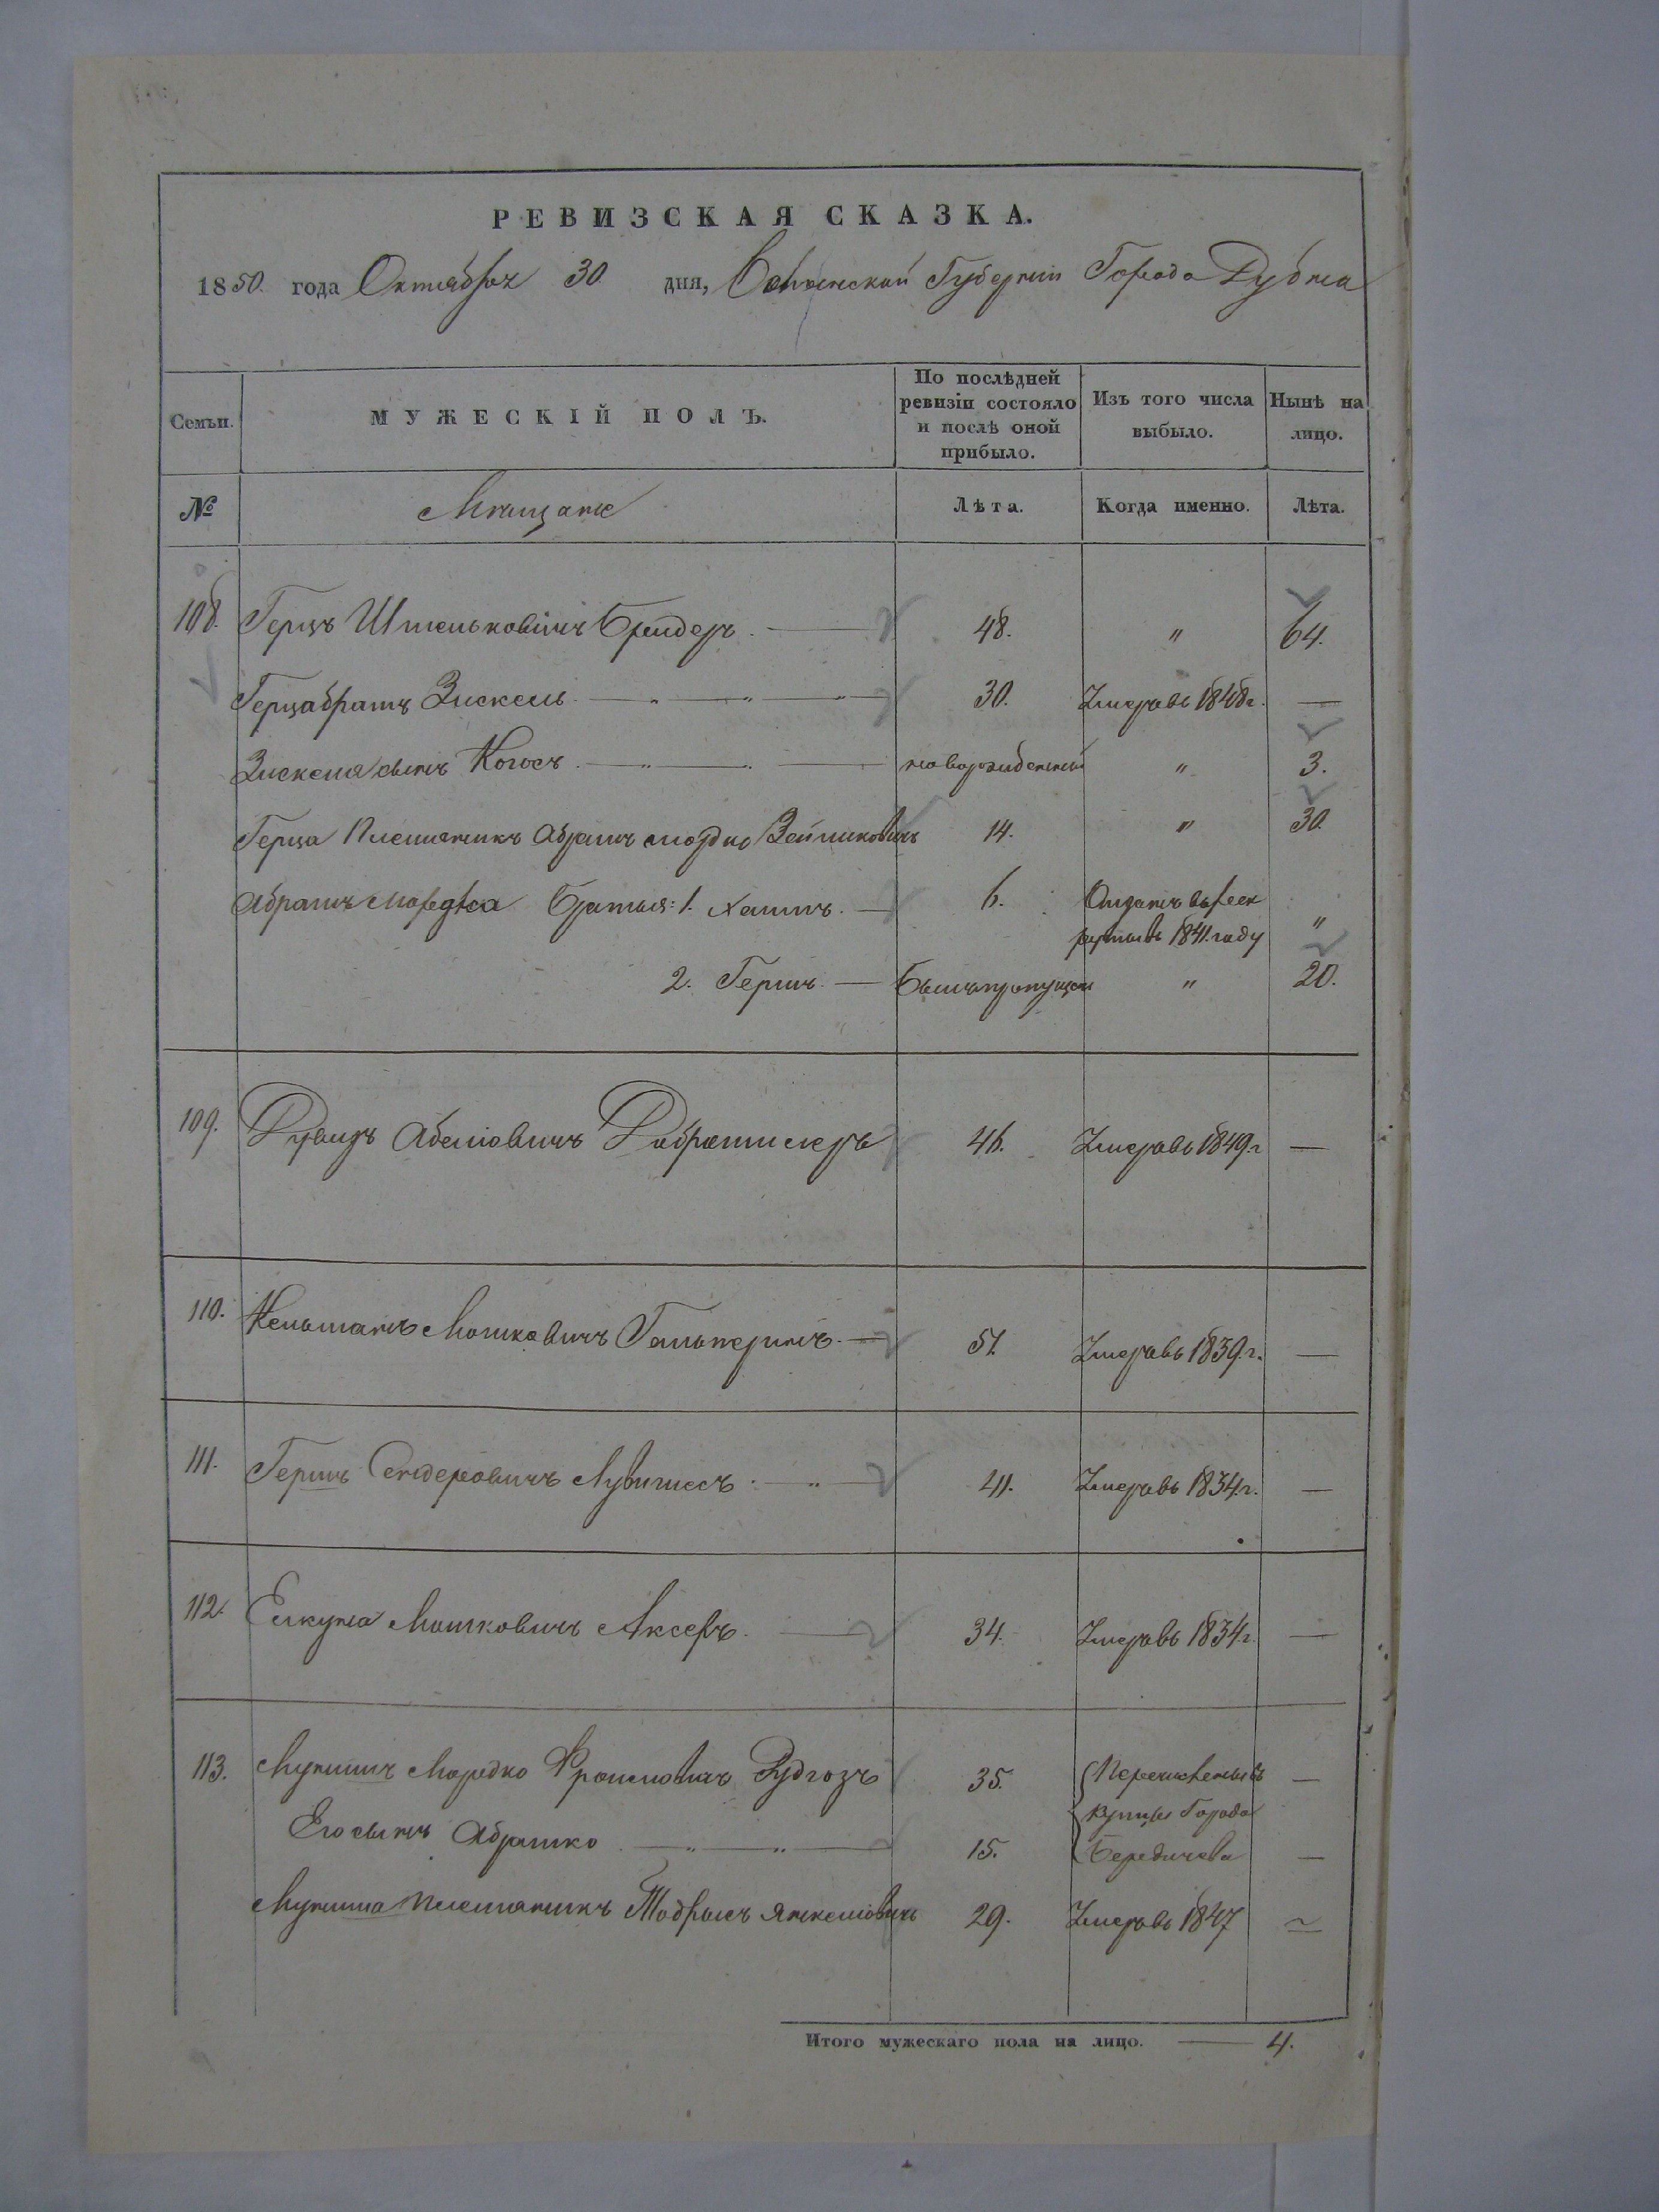 РЕВИЗСКАЯ СКАЗКА.
1850. года Октября 30. дня, Волынской Губернии Города Дубна
Семьи.
МУЖЕСКІЙ ПОЛЪ.
По послѣдней
ревизіи состояло
и послѣ оной
прибыло.
Изъ того числа
выбыло.
Нынѣ на
лицо.
№ Мѣщане Лѣта. Когда именно. Лѣта.
108. Герцъ Шмельковичъ 48. " 64.
Герца братъ Зискель 30. Умеръ въ 1848 г. —
Зискеля сынъ новорожденный " 3.
Герца Племянникъ Абрамъ Мордко Зельмановичъ 14. " 30.
Абрамъ Мордка Братья: 1. Хаимъ. 6. Отданъ въ рек
руты въ 1841. году "
2. Гершъ. — Былъ пропущен " 20.
109. Абелиовичъ 46. Умеръ въ 1849. г —
110. Кельманъ Мошковичъ Гальперинъ. 51. Умеръ въ 1839. г. —
111. Гершъ Сендеровичъ 41. Умеръ въ 1834. г. —
112. Мошковичъ Аксеръ. 34. Умеръ въ 1834 г. —
113. Мордко 35. Перечисленъ въ —
купцы Города
Его сынъ Абрамко 15. Бердичева —
Племянникъ Тодрысъ Янкелиовичъ 29. Умеръ въ 1847 —
Итого мужескаго пола на лицо. — 4.